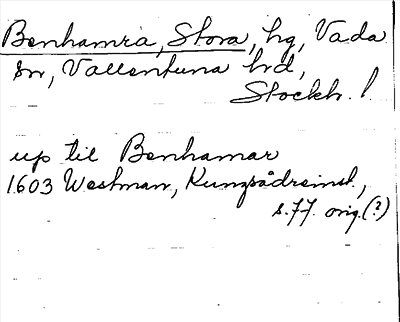 Benhamra, Stora, hg, Vada
sn, Vallentuna hrd,
Stockh. l.
up til Benhamar
1603 Westman, Kungsådreinst.,
s. 77. orig. (?)